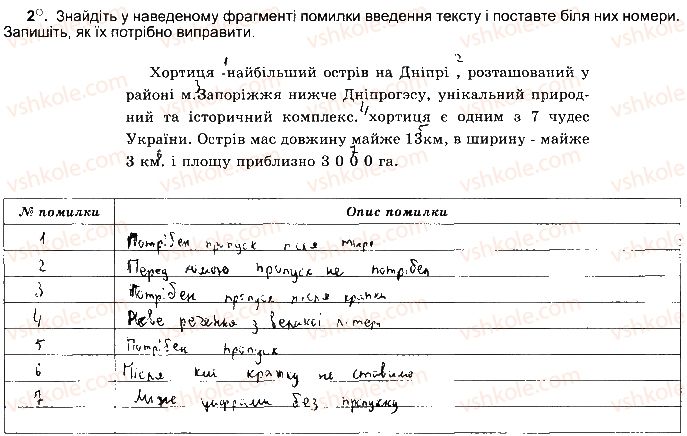 2°. Знайдіть у наведеному фрагменті помилки введення тексту і поставте біля них номери.
Запишіть, як їх потрібно виправити.
1 2
Хортиця -найбільший острів на Дніпрі , розташований у
3
районі м.Запоріжжя нижче Дніпрогэсу, унікальний природ-
4
ний та історичний комплекс. хортиця є одним з 7 чудес
5
України. Острів має довжину майже 13км, в ширину - майже
6 7
3 км. і площу приблизно 3 0 0 0 га.
№ помилки Опис помилки
1 Потрібен пропуск після тире
2 Перед комою пропуск не потрібен
3 Потрібен пропуск після крапки
4 Нове речення з великої літери
5 Потрібен пропуск
6 Після км крапку не ставимо
7 Між цифрами без пропуску
vshkole.com